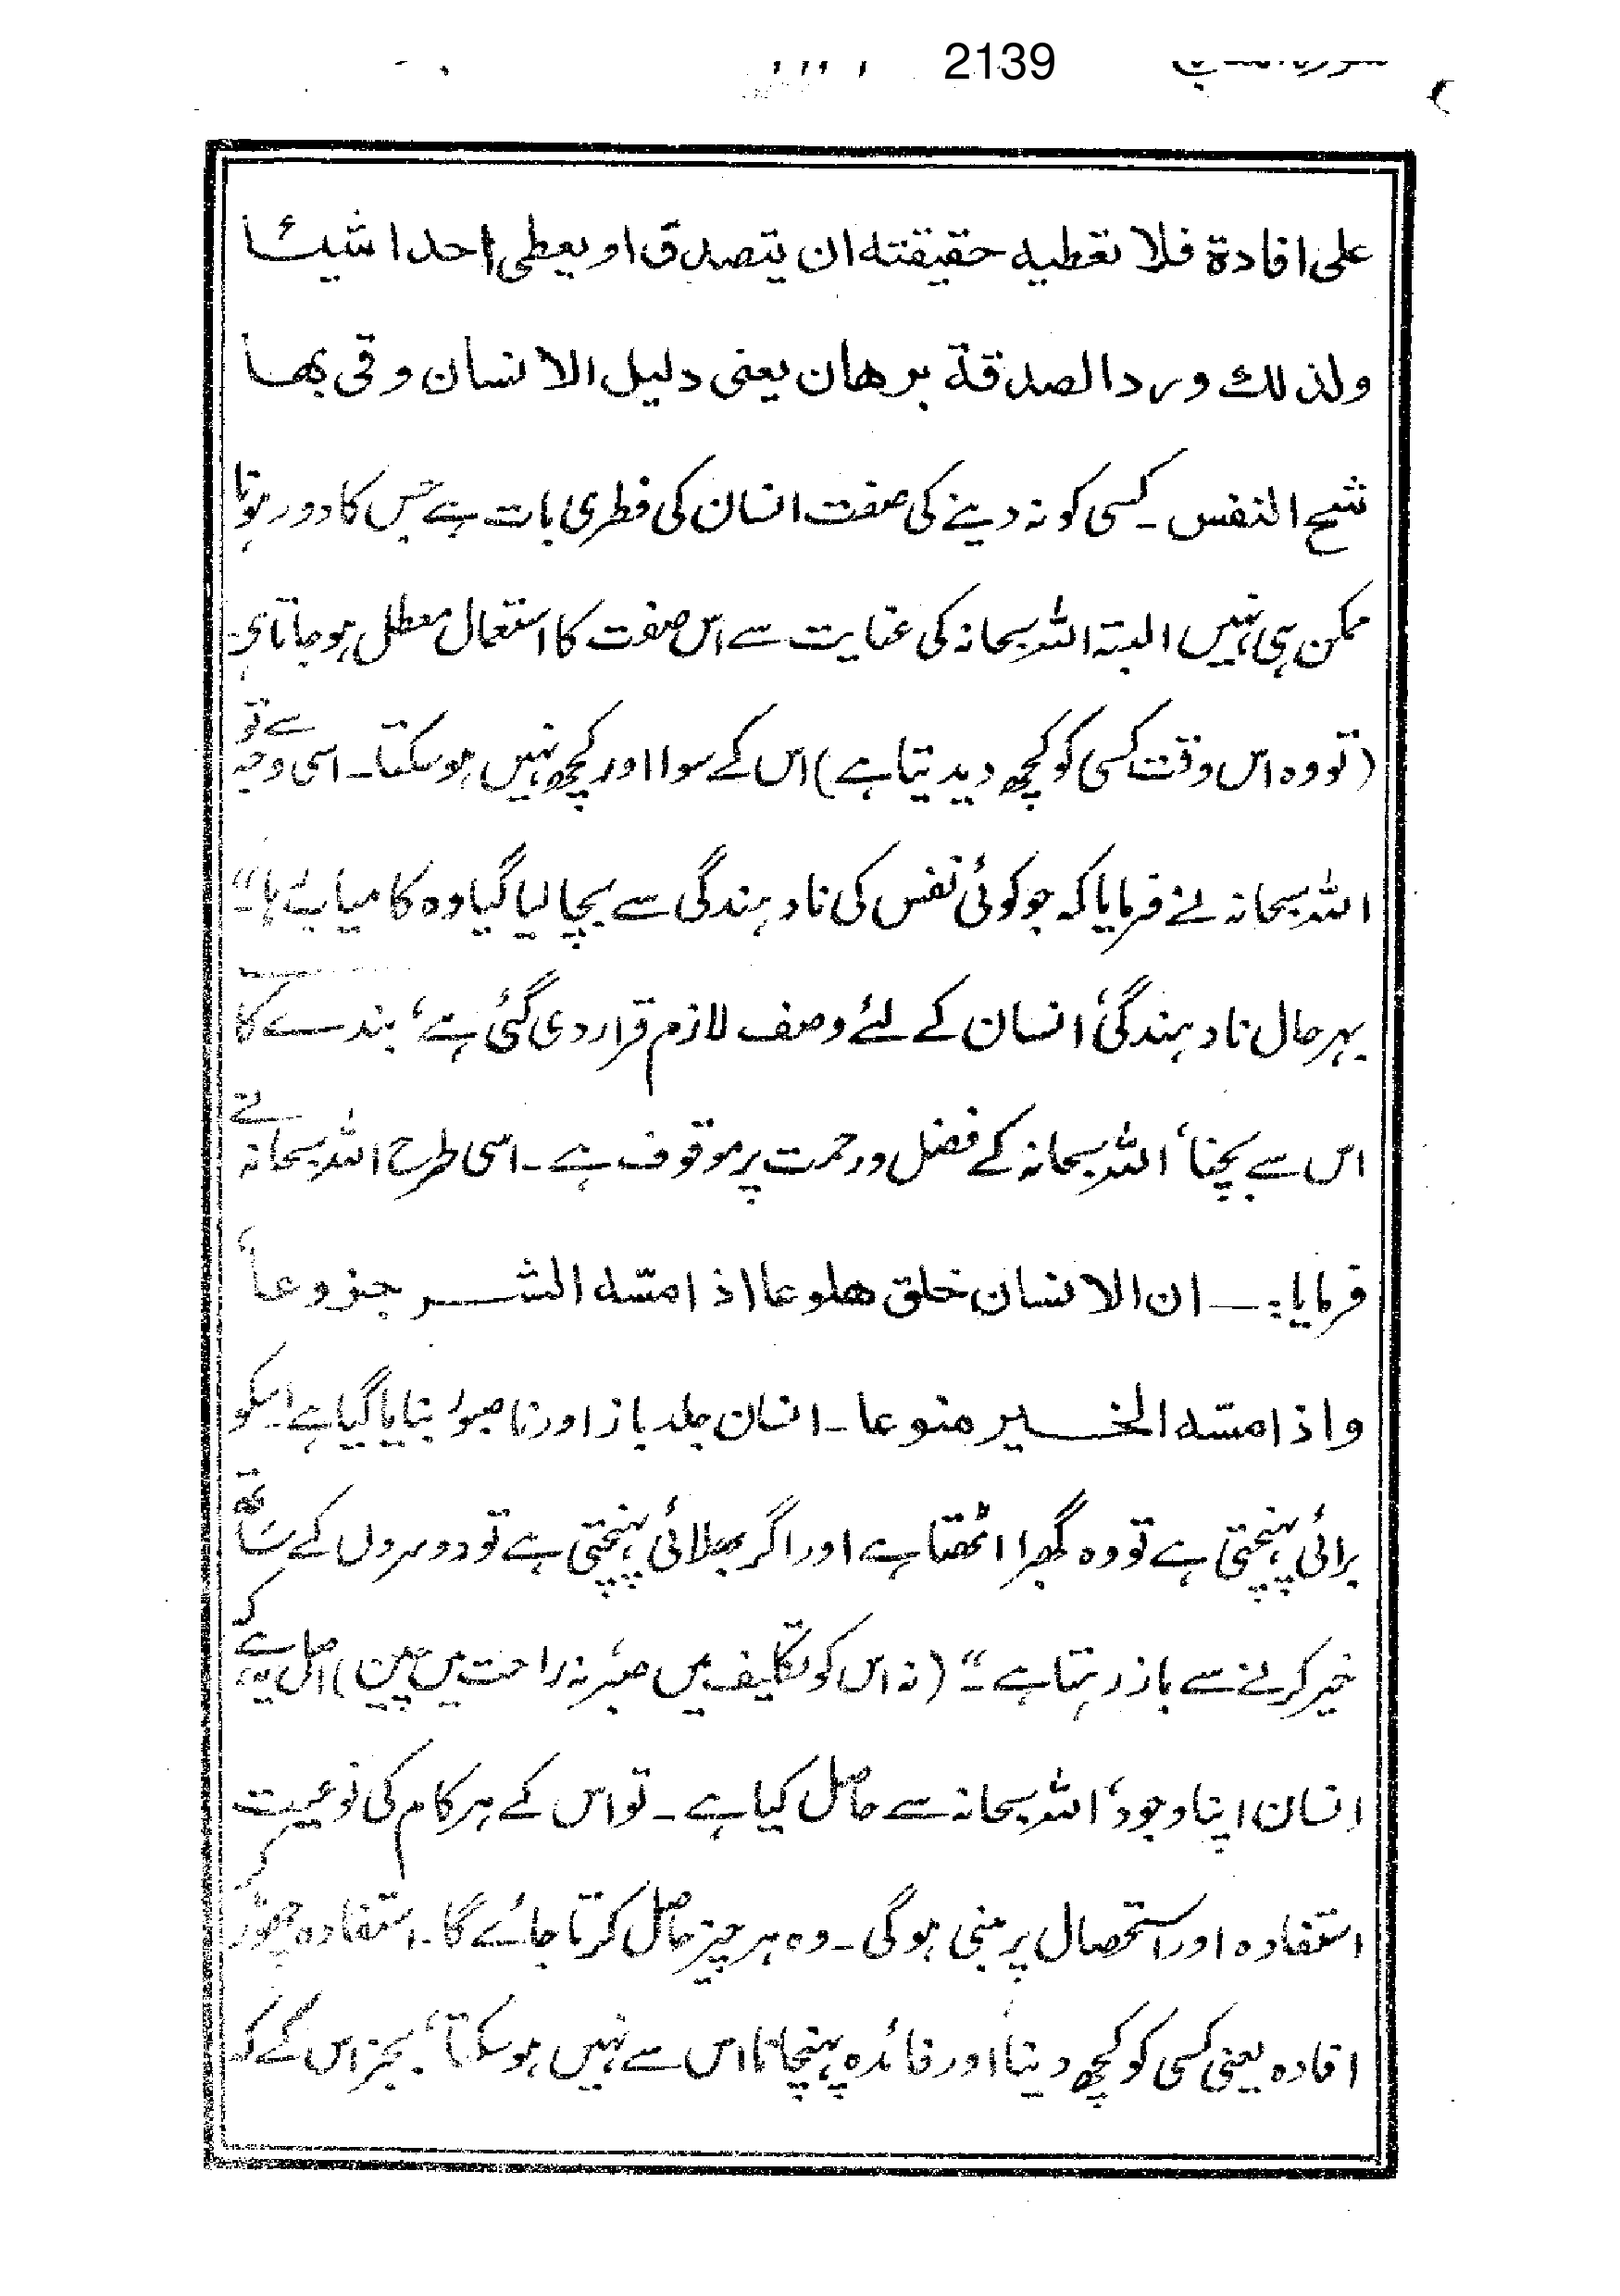 2139
على افادة فلا تعطيه حقيقته ان يتصدق او يعطى احدا شيئا
ولذلك ورد الصدقة برهان يعنى دليل الانسان وقى بها
شح النفس ـ کسی کو نہ دینے کی صفت انسان کی فطری بات ہے جس کا دور ہونا
ممکن ہی نہیں البتہ اللہ سبحانہ کی عنایت سے اس صفت کا استعمال معطل ہو جاتا ہے۔
(تو وہ اس وقت کسی کو کچھ دیدیتا ہے) اس کے سوا اور کچھ نہیں ہوسکتا۔ اسی وجہ سے تو
اللہ سبحانہ نے فرمایا کہ جو کوئی نفس کی نادہندگی سے بچالیا گیا وہ کامیاب رہا۔“
بہرحال نادہندگی‘ انسان کے لئے وصف لازم قرار دی گئی ہے‘ بندے کا
اس سے بچنا‘ اللہ سبحانہ کے فضل و رحمت پر موقوف ہے۔ اسی طرح اللہ سبحانہ نے
فرمایا:ـــ ان الانسان خلق هلوعا اذا مسّه الشـر جزوعا‘
واذا مسّه الخـير منوعا۔ انسان جلد باز اور ناصبور بنایا گیا ہے۔ اسکو
برائی پہنچتی ہے تو وہ گھبرا اٹھتا ہے اور اگر بھلائی پہنچتی ہے تو دوسروں کے ساتھ
خیر کرنے سے باز رہتا ہے۔“ (نہ اس کو تکلیف میں صبر نہ راحت میں چین) اصل یہ ہے کہ
انسان اپنا وجود‘ اللہ سبحانہ سے حاصل کیا ہے۔ تو اس کے ہر کام کی نوعیت
استفادہ اور استحصال پر مبنی ہوگی۔ وہ ہر چیز حاصل کرتا جائے گا۔ استفادہ چھوڑ کر
افادہ یعنی کسی کو کچھ دینا اور فائدہ پہنچانا اس سے نہیں ہوسکتا‘ بجز اس کے کہ